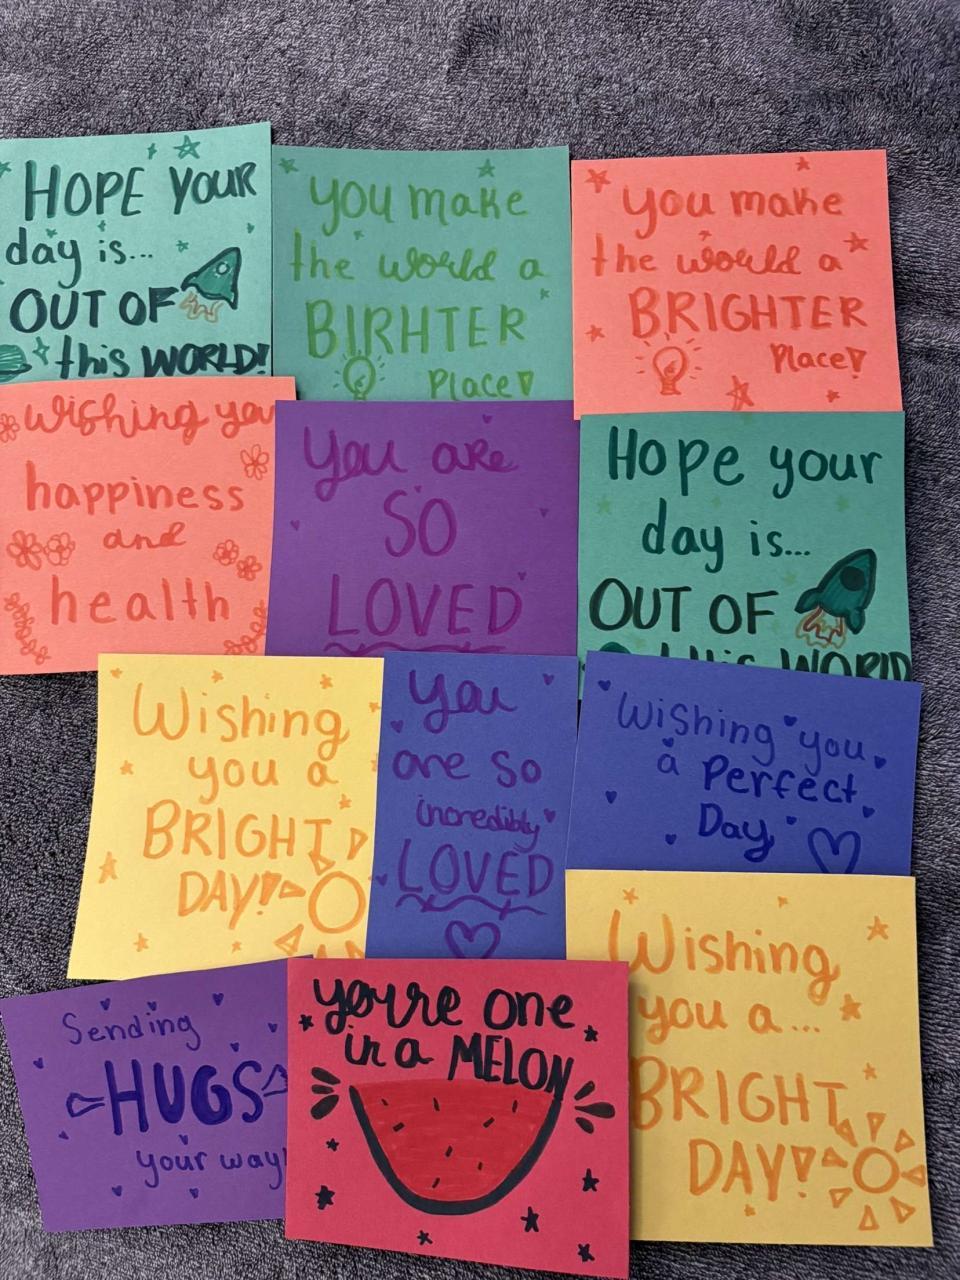 HOPE YOUR
day is...
OUT OF
this WORLD!
you make
the world a
BIRHTER
Place!
you make
the world a
BRIGHTER
Place!
Wishing you
happiness
and
health
You are
SO
LOVED
Hope your
day is...
OUT OF
this WORLD
Wishing
you a
BRIGHT
DAY!
You
are so
incredibly
LOVED
Wishing you
a Perfect
Day
Sending
HUGS
your way
you're one
in a MELON
Wishing
you a...
BRIGHT
DAY!